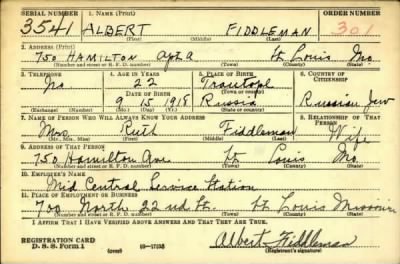 SERIAL NUMBER 1. NAME (Print) ORDER NUMBER
3541 ALBERT FIDDLEMAN 301
(First) (Middle) (Last)
2. ADDRESS (Print)
750 HAMILTON Apt a St Louis Mo.
(Number and street or R. F. D. number) (Town) (County) (State)
3. TELEPHONE 4. AGE IN YEARS 5. PLACE OF BIRTH 6. COUNTRY OF CITIZENSHIP
No 22
DATE OF BIRTH (Town or county)
9 15 1918 Russia Russian Jew
(Exchange) (Number) (Mo.) (Day) (Yr.) (State or country)
7. NAME OF PERSON WHO WILL ALWAYS KNOW YOUR ADDRESS 8. RELATIONSHIP OF THAT PERSON
Mrs Ruth Fiddleman Wife
(Mr., Mrs., Miss) (First) (Middle) (Last)
9. ADDRESS OF THAT PERSON
750 Hamilton Ave St Louis Mo.
(Number and street or R. F. D. number) (Town) (County) (State)
10. EMPLOYER'S NAME
Mid Central Service Station
11. PLACE OF EMPLOYMENT OR BUSINESS
700 North 22nd St. St Louis Missouri
(Number and street or R. F. D. number) (Town) (County) (State)
I AFFIRM THAT I HAVE VERIFIED ABOVE ANSWERS AND THAT THEY ARE TRUE.
REGISTRATION CARD
D. S. S. Form 1 (over) 16-17105 Albert Fiddleman
(Registrant's signature)